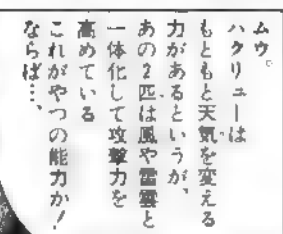 ムウ。
ハクリューは
もともと天気を変える
力があるというが、
あの2匹は風や雷雲と
一体化して攻撃力を
高めている
これがやつの能力か！
ならば…、